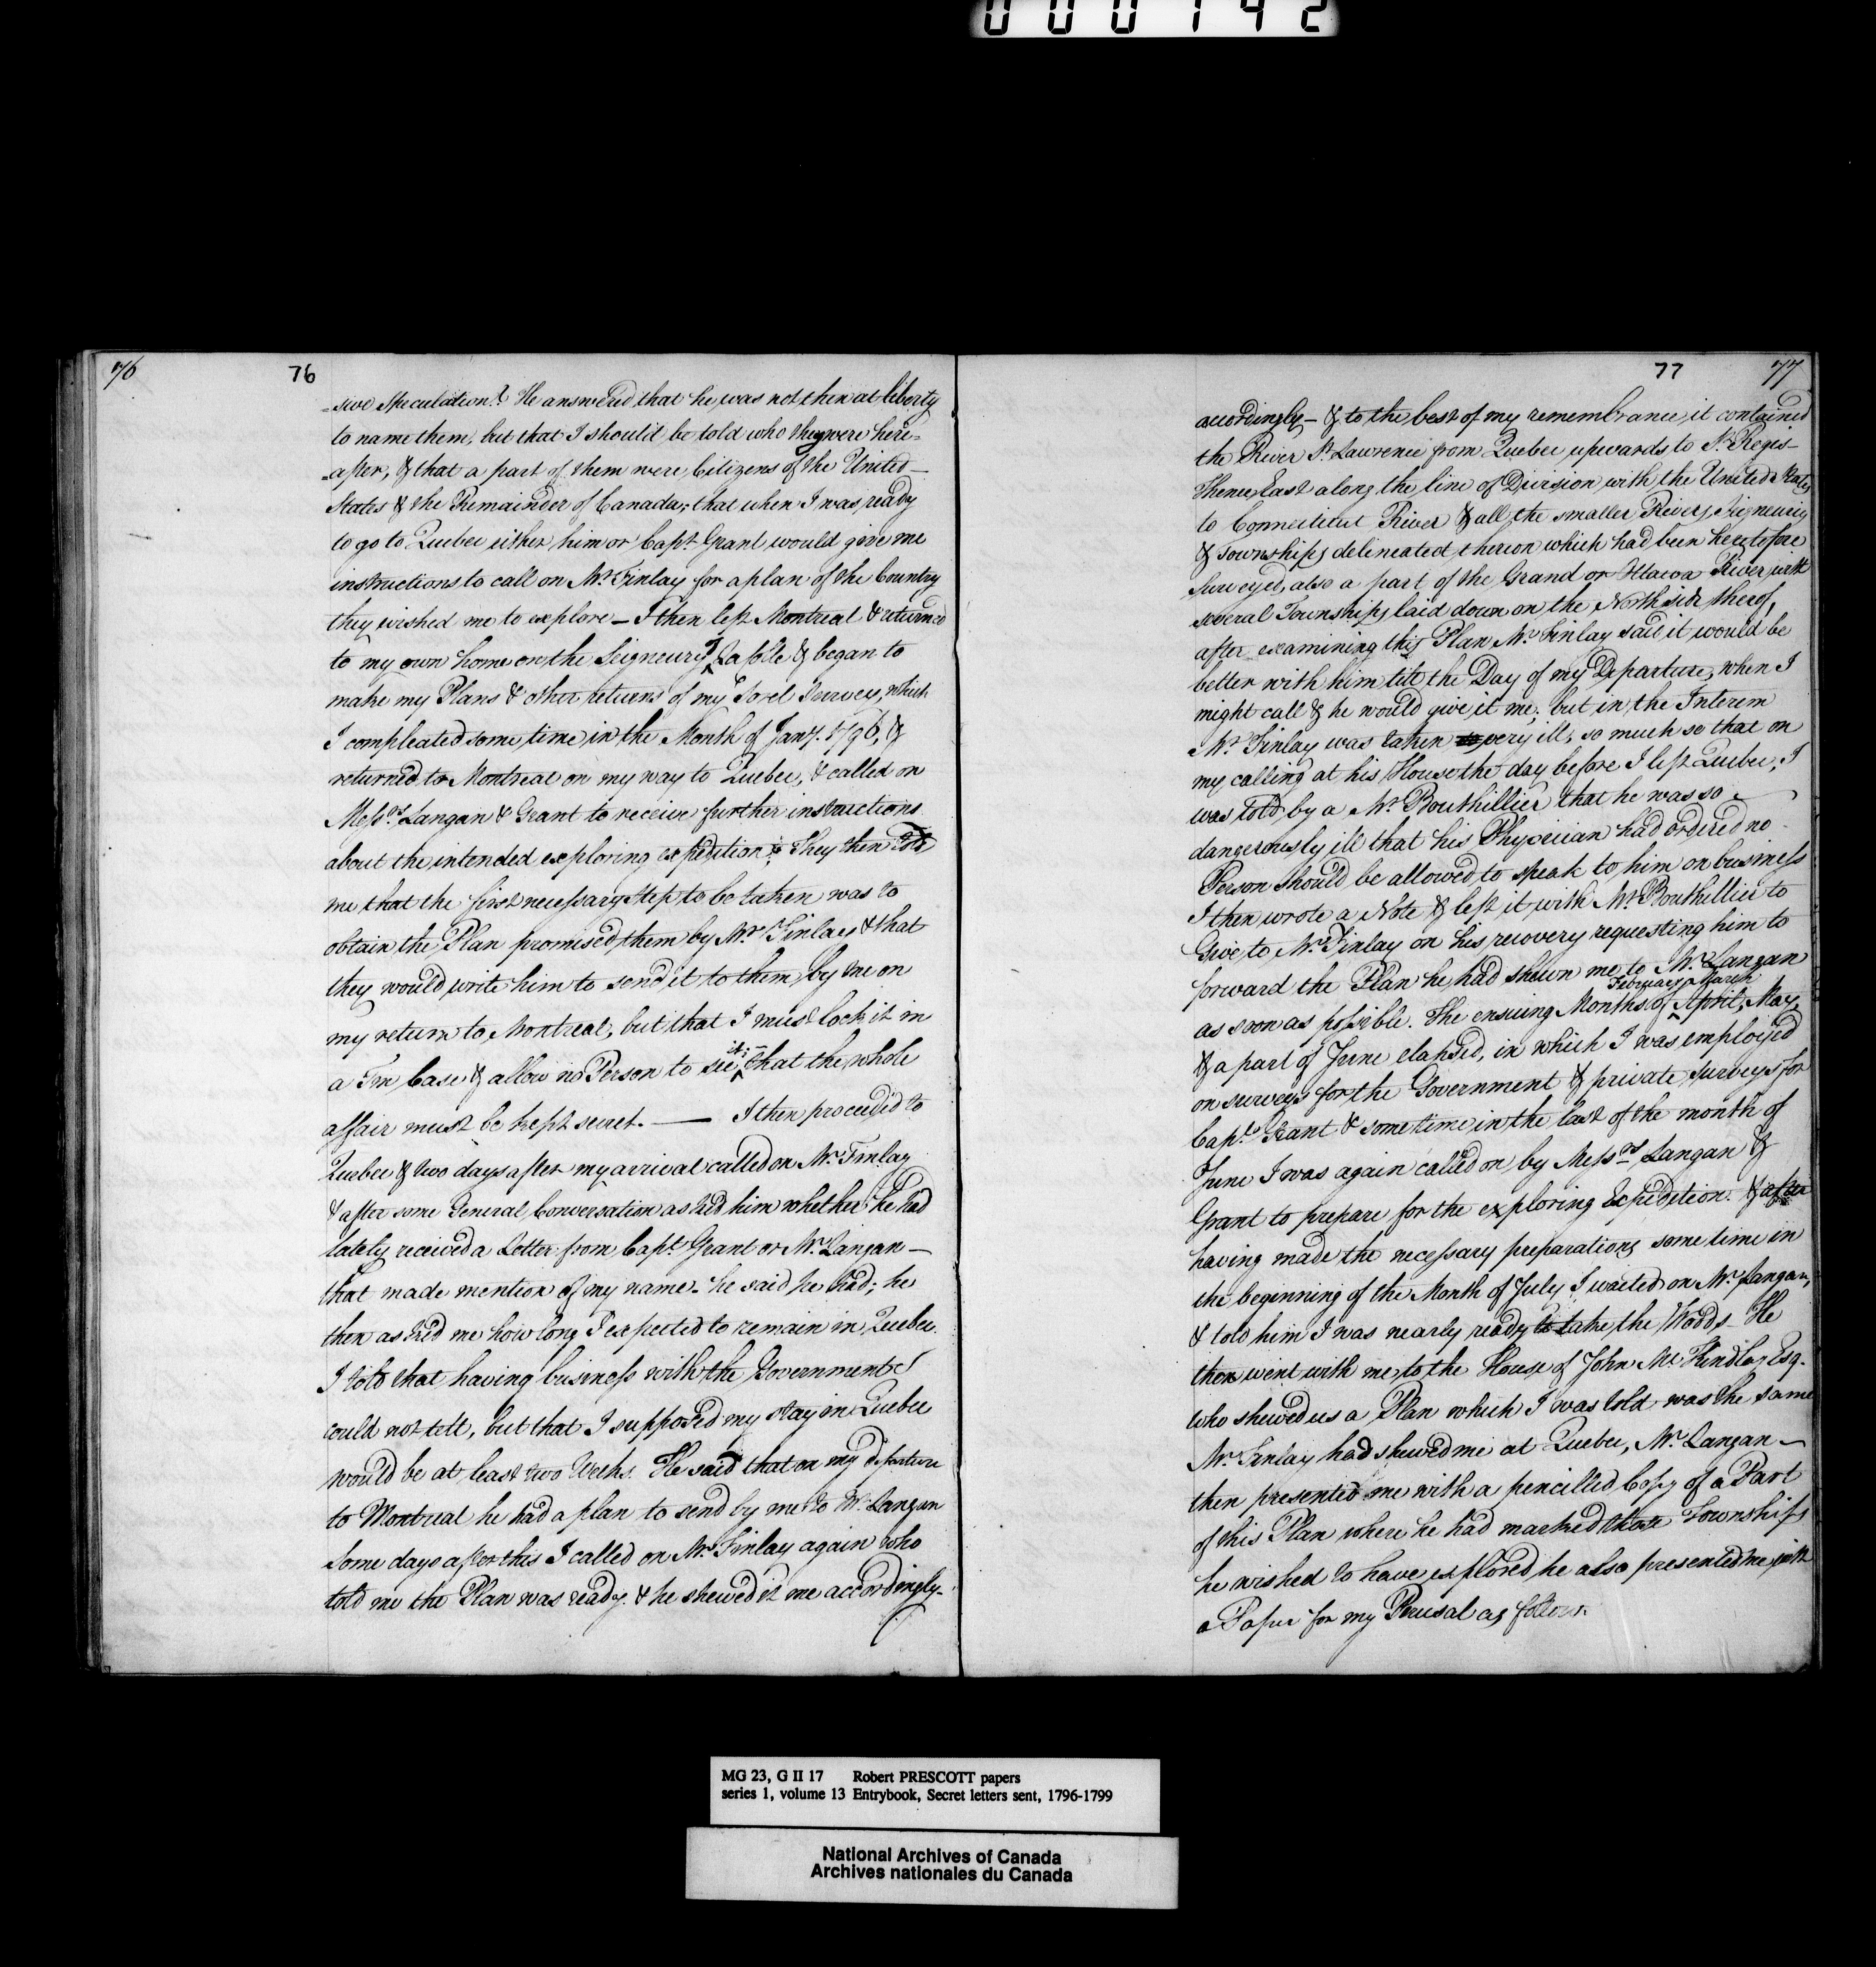 000142
76 76
-sive speculation? He answered that he was not then at liberty
to name them, but that I should be told who they were here=
=after, & that a part of them were Citizens of the United—
States & the Remainder of Canada; that when I was ready
to go to Quebec either him or Capt. Grant would give me
instructions to call on Mr. Finlay for a plan of the Country
they wished me to explore — I then left Montreal & returned
to my own home on the Seigneury of Lacolle & began to
make my Plans & other returns of my Sorel Survey, which
I compleated some time in the Month of Jany. 1796, &
returned to Montreal on my way to Quebec, & called on
Messrs. Langan & Grant to receive further instructions
about the intended exploring expedition; They then told
me that the first necessary Step to be taken was to
obtain the Plan promised them by Mr. Finlay & that
they would write him to send it to them by me on
my return to Montreal, but that I must lock it in
a Tin Case & allow no Person to see it;– that the whole
affair must be kept secret. — I then proceeded to
Quebec & two days after my arrival called on Mr. Finlay
& after some General Conversation asked him whether he had
lately received a Letter from Capt. Grant or Mr. Langan —
that made mention of my name. he said he had; he
then asked me how long I expected to remain in Quebec.
I told that having business with the Government I
could not tell, but that I supposed my stay in Quebec
would be at least two Weeks. He said that on my departure
to Montreal he had a plan to send by me to Mr. Langan
Some days after this I called on Mr. Finlay again who
told me the Plan was ready & he shewed it me accordingly-
77 77
accordingly — & to the best of my remembrance it contained
the River St. Lawrence from Quebec upwards to St. Regis —
Thence East along the line of Division with the United States
to Connecticut River & all the smaller Rivers, Seigneuries
& Townships delineated thereon which had been heretofore
Surveyed, also a part of the Grand or Utawa River with
several Townships laid down on the North side thereof,
after examining this Plan Mr. Finlay said it would be
better with him till the Day of my Departure, when I
might call & he would give it me; but in the Interem
Mr. Finlay was taken very ill, so much so that on
my calling at his House the day before I left Quebec, I
was told by a Mr. Bouthillier that he was so —
dangerously ill that his Physician had ordered no
Person should be allowed to speak to him on business
I then wrote a Note & left it with Mr. Bouthillier to
Give to Mr. Finlay on his recovery requesting him to
forward the Plan he had shewn me to Mr. Langan
as soon as possible. The ensuing Months of February, March April, May,
& a part of June elapsed, in which I was employed
on surveys for the Government & private surveys for
Capt. Grant & some time in the last of the month of
June I was again called on by Messrs. Langan &
Grant to prepare for the exploring Expedition. & after
having made the necessary preparations some time in
the beginning of the Month of July I waited on Mr. Langan,
& told him I was nearly ready to take the Woods. He
then went with me to the House of John Mc Kindlay Esq.
who shewed us a Plan which I was told was the same
Mr. Finlay had shewed me at Quebec, Mr. Langan —
then presented me with a pencilled Copy of a Part
of this Plan where he had marked those Townships
he wished to have explored, he also presented me with
a Paper for my Perusal as follow.
MG 23, G II 17 Robert PRESCOTT papers
series 1, volume 13 Entrybook, Secret letters sent, 1796-1799
National Archives of Canada
Archives nationales du Canada